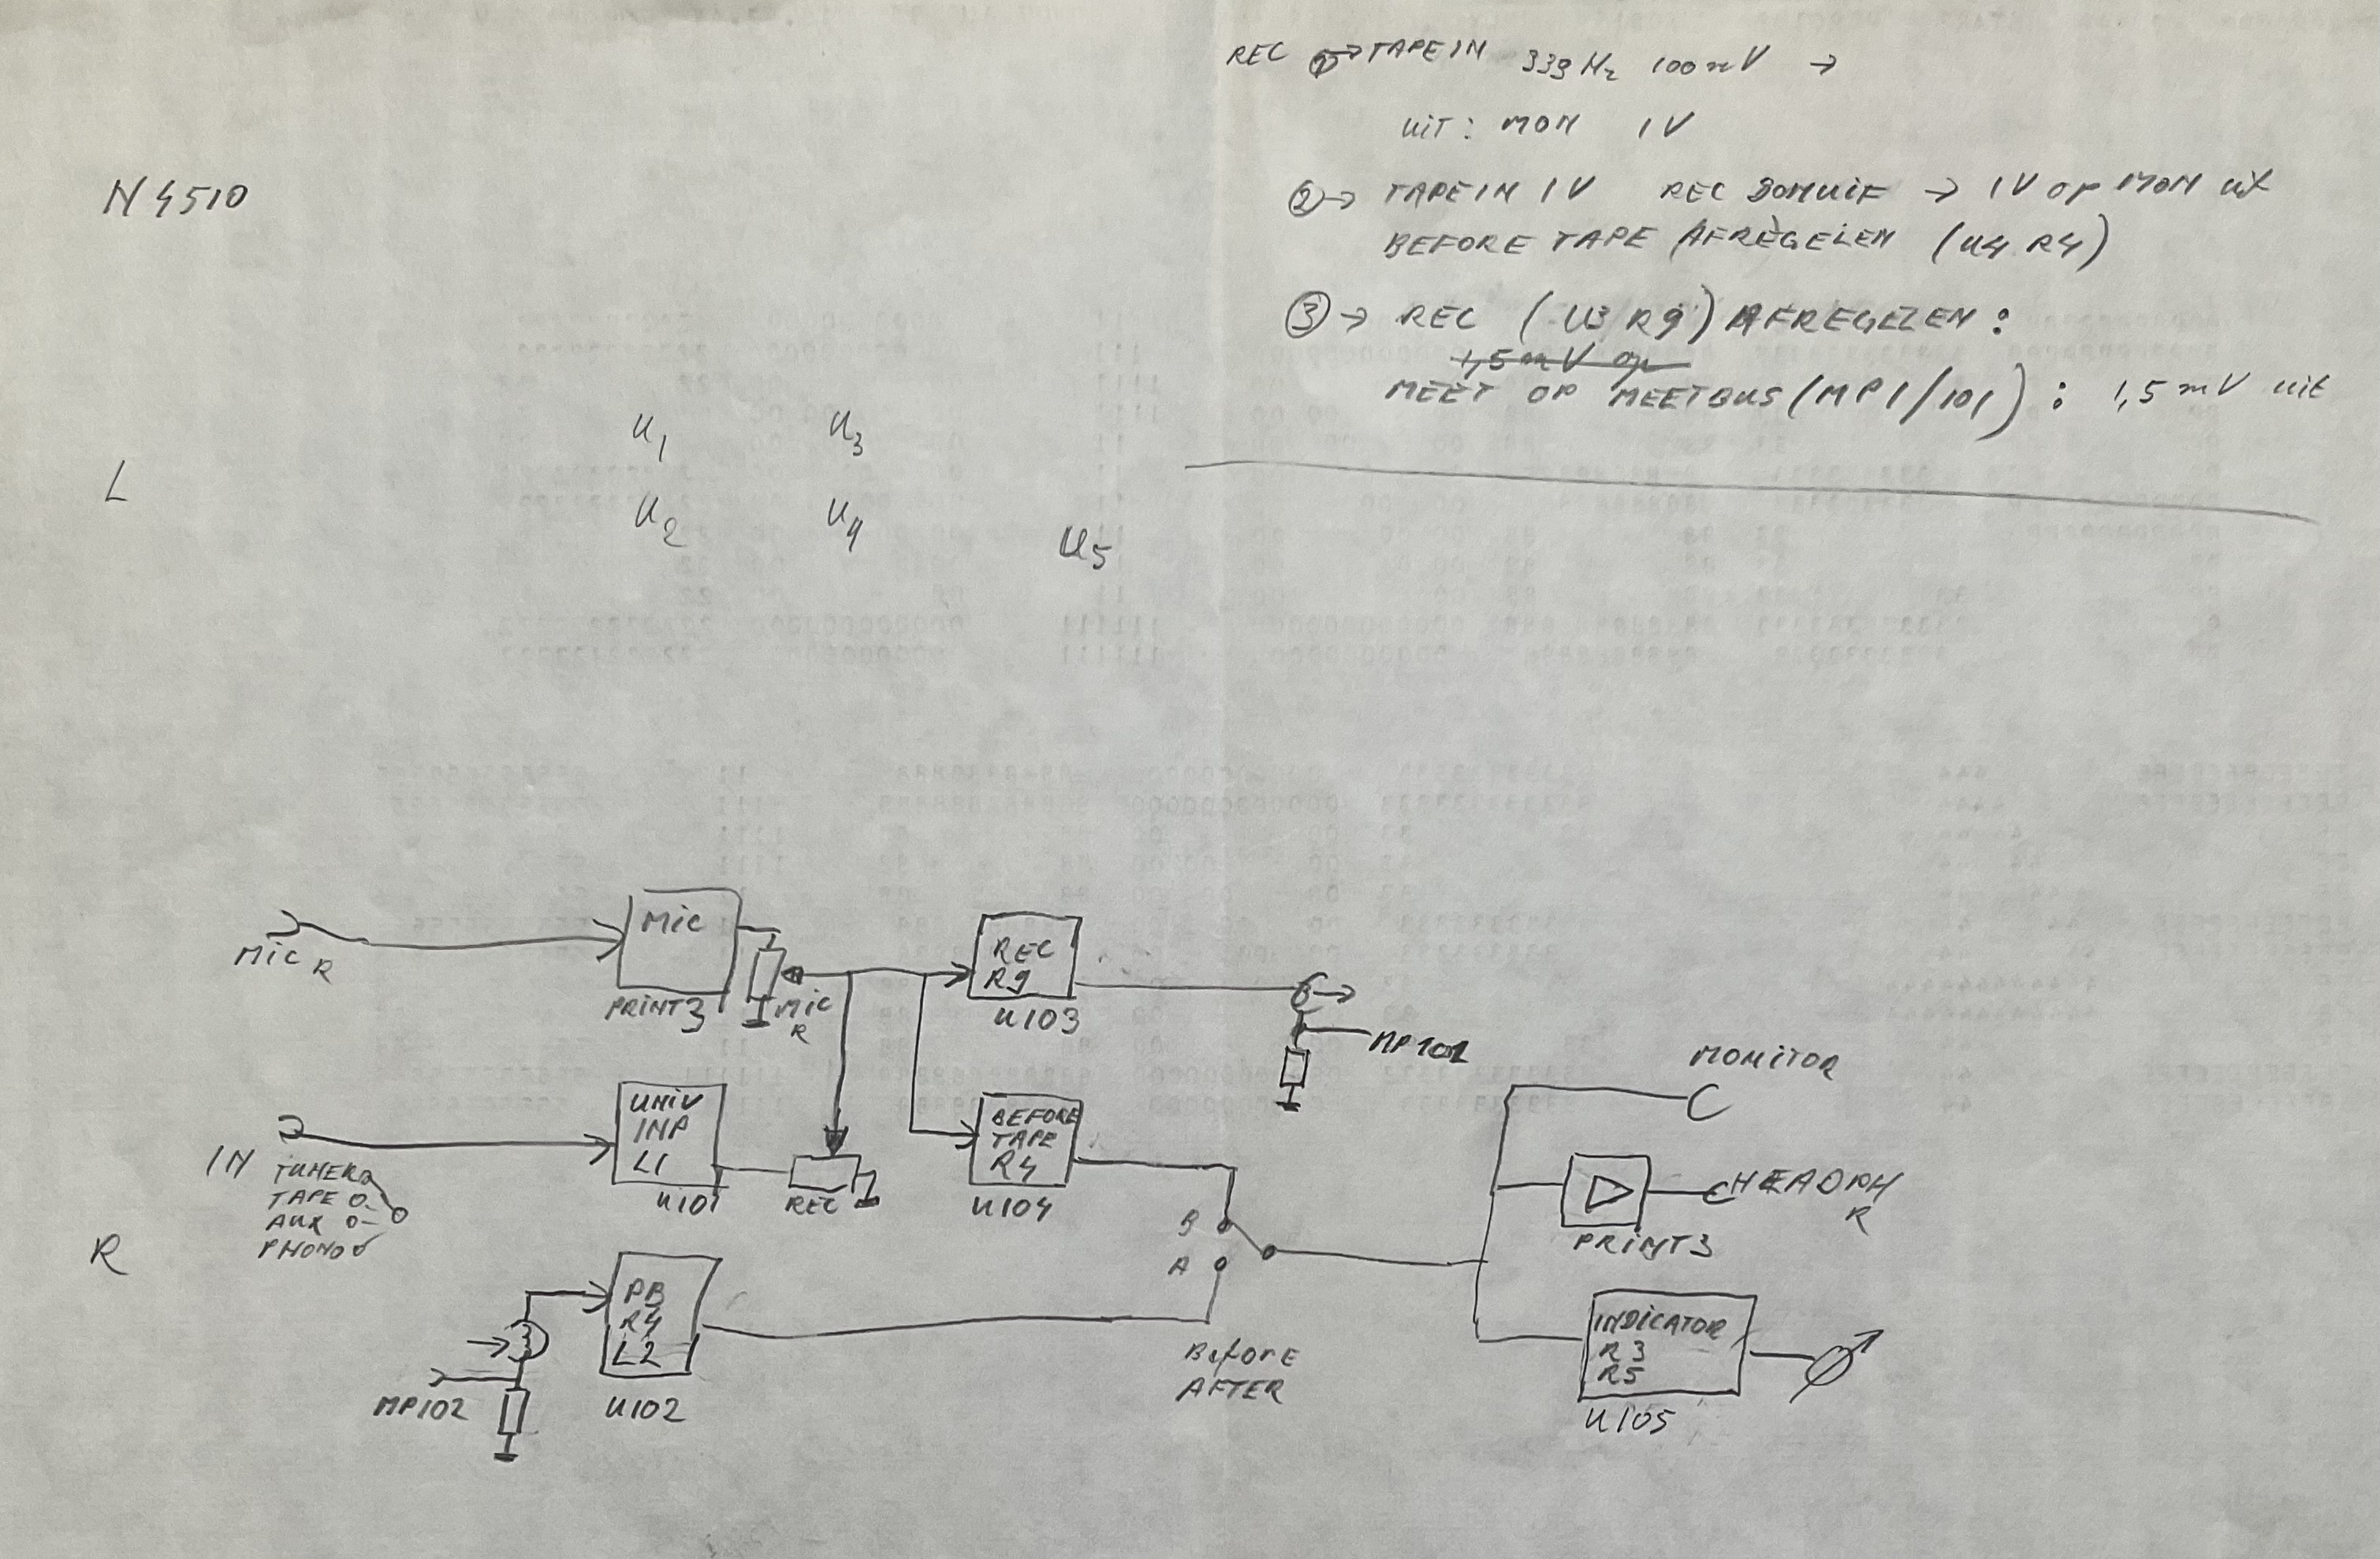 REC ① → TAPE IN 339 Hz 100 mV →
UIT: MON 1V
② → TAPE IN 1V REC → 1V OP MON uit
BEFORE TAPE AFREGELEN (U4 R4)
③ → REC (U3 R9) AFREGELEN:
1,5 mV op
MEET OP MEETBUS (MP1/101): 1,5 mV uit
N4510
L
U1 U3
U2 U4
U5
MIC R
MIC
PRINT3
MIC
R
REC
R9
U103
MP101
IN
TUNER
TAPE
AUX
PHONO
UNIV
INP
L1
U101
REC
BEFORE
TAPE
R4
U104
MONITOR
HEADPH
R
PRINT3
R
PB
R4
L2
U102
MP102
B
A
BEFORE
AFTER
INDICATOR
R3
R5
U105